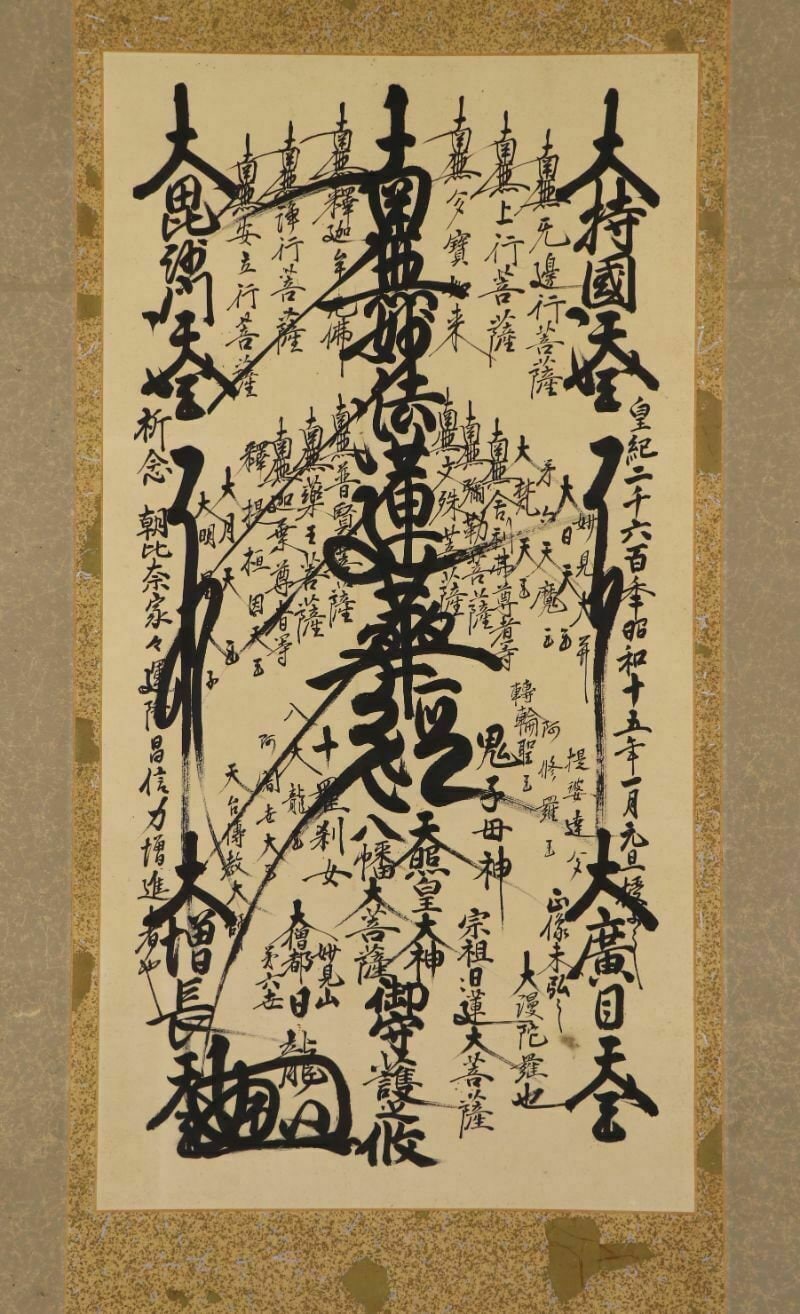 大持國天王
皇紀二千六百年昭和十五年一月元旦
大廣目天王
南無无邊行菩薩
南無上行菩薩
南無多寶如来
南無妙法蓮華経
南無釋迦牟尼佛
南無浄行菩薩
南無安立行菩薩
大毘沙門天王
妙見大菩
大日天王
第六天魔王
大梵天王
南無舎利弗尊者等
南無彌勒菩薩
南無文殊菩薩
南無普賢菩薩
南無藥王菩薩
南無迦葉尊者等
釋提桓因天王
大月天王
大明
提婆達多
阿修羅王
轉輪聖王
鬼子母神
十羅刹女
八大龍王
阿闍世大王
天台傳教大師
正像未弘
大漫陀羅也
宗祖日蓮大菩薩
天照皇大神
八幡大菩薩
御守護之
妙見山
第六世
大僧都日龍
祈念 朝比奈家々運隆昌信力増進者也
大増長天王